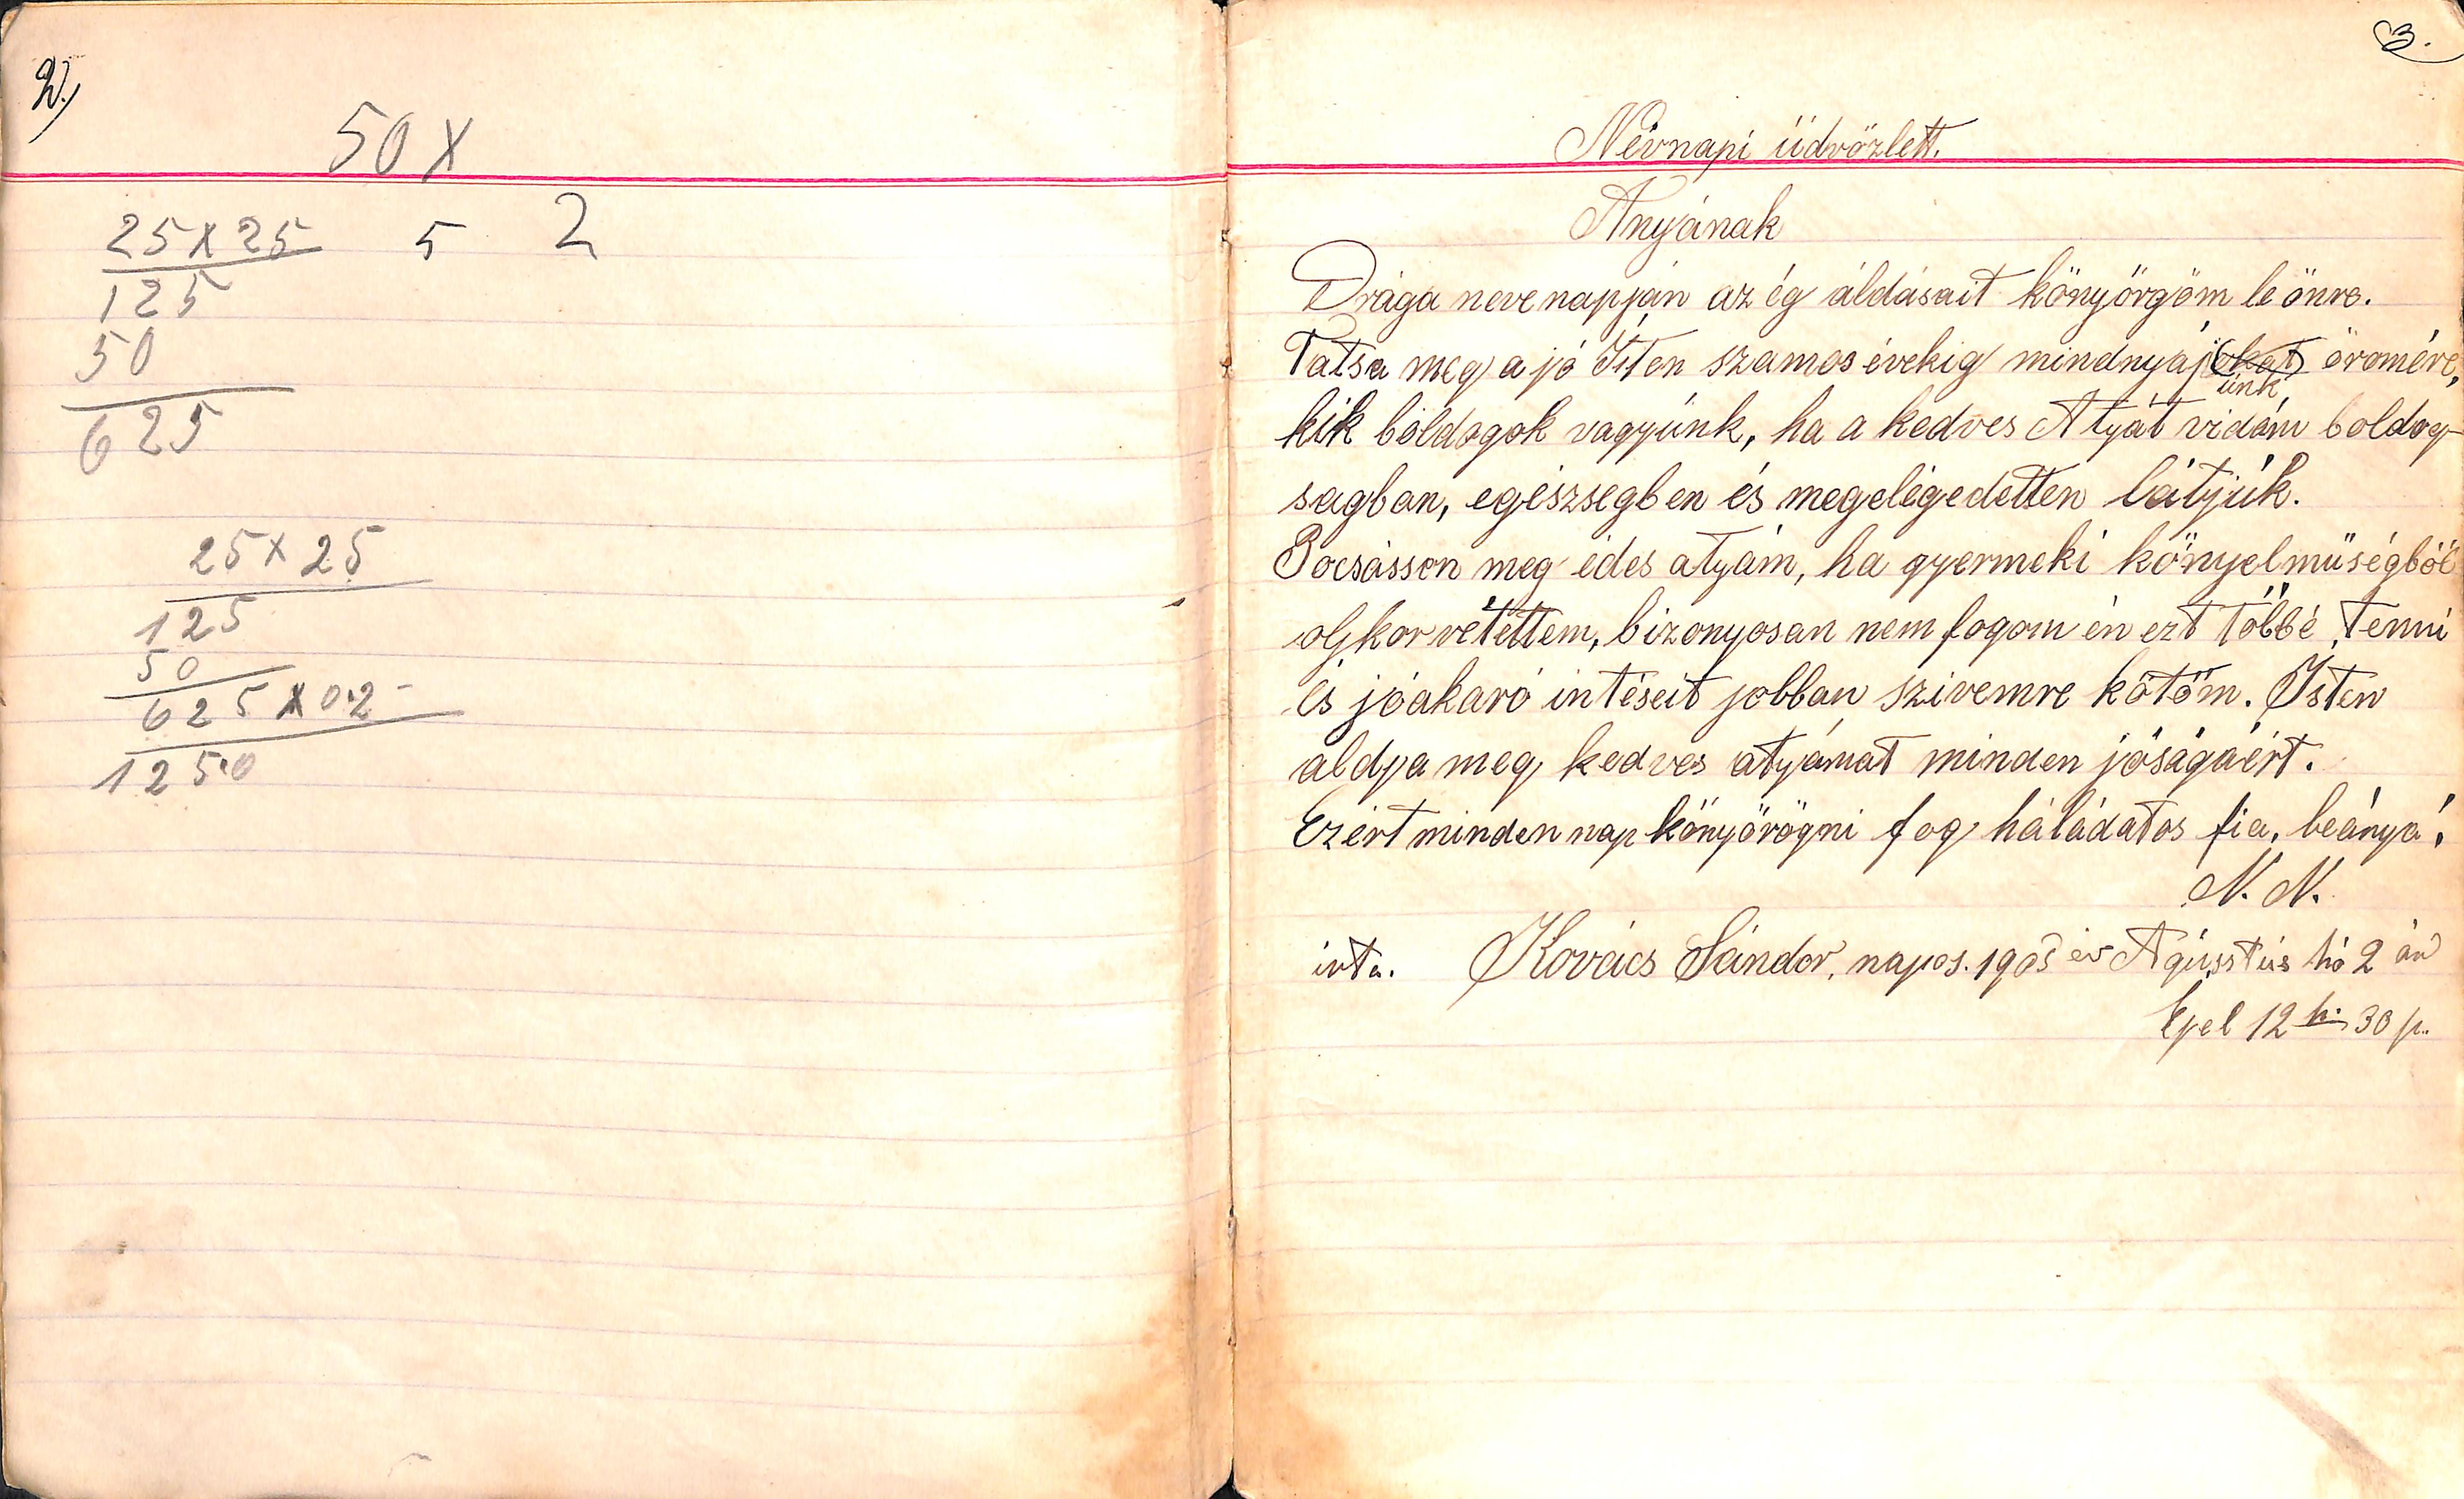 2.)
50 x
25 x 25 5 2
125
50
625
25 x 25
125
50
625 x 0.2
125.0
3.
Névnapi üdvözlett.
Anyának
Drága neve napján az ég áldásait könyörgöm le önre.
Tatsa meg a jó Isten szamos évekig mindnyáj okat örömére,
ünk
kik boldogok vagyünk, ha a kedves Atyát vidám boldog-
sagban, egészsegben és megelégedetten látjuk.
Bocsásson meg édes atyám, ha gyermeki könyelmüségböl
olykor vétettem, bizonyosan nem fogom én ezt többé tenni
és jóakaró intéseit jobban szivemre kötöm. Isten
aldja meg kedves atyámat minden jóságáért.
Ezért minden nap könyörögni fog háládatos fia, leánya,
N. N.
irta. Kovács Sándor, napos. 1905 év Agusstús hó 2 án
Éjel 12 h. 30 p.